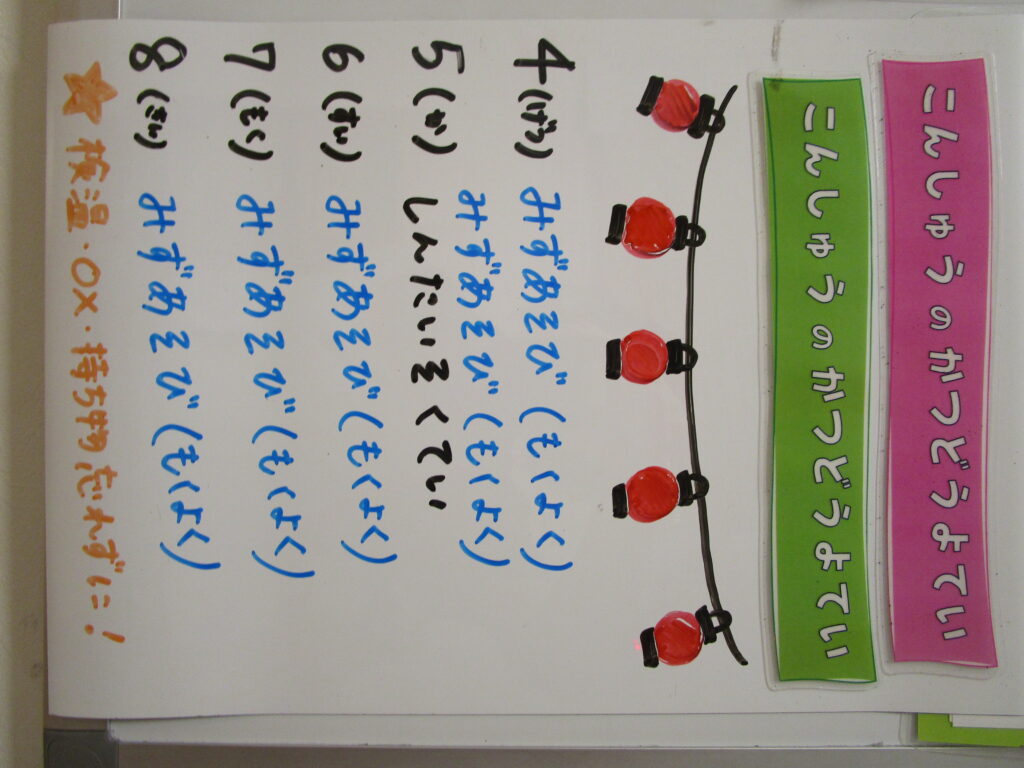 こんしゅうのかつどうよてい
こんしゅうのかつどうよてい
4(げつ) みずあそび(もくよく)
5(か) みずあそび(もくよく)
しんたいそくてい
6(すい) みずあそび(もくよく)
7(もく) みずあそび(もくよく)
8(きん) みずあそび(もくよく)
☆ 検温・○×・持ち物忘れずに!